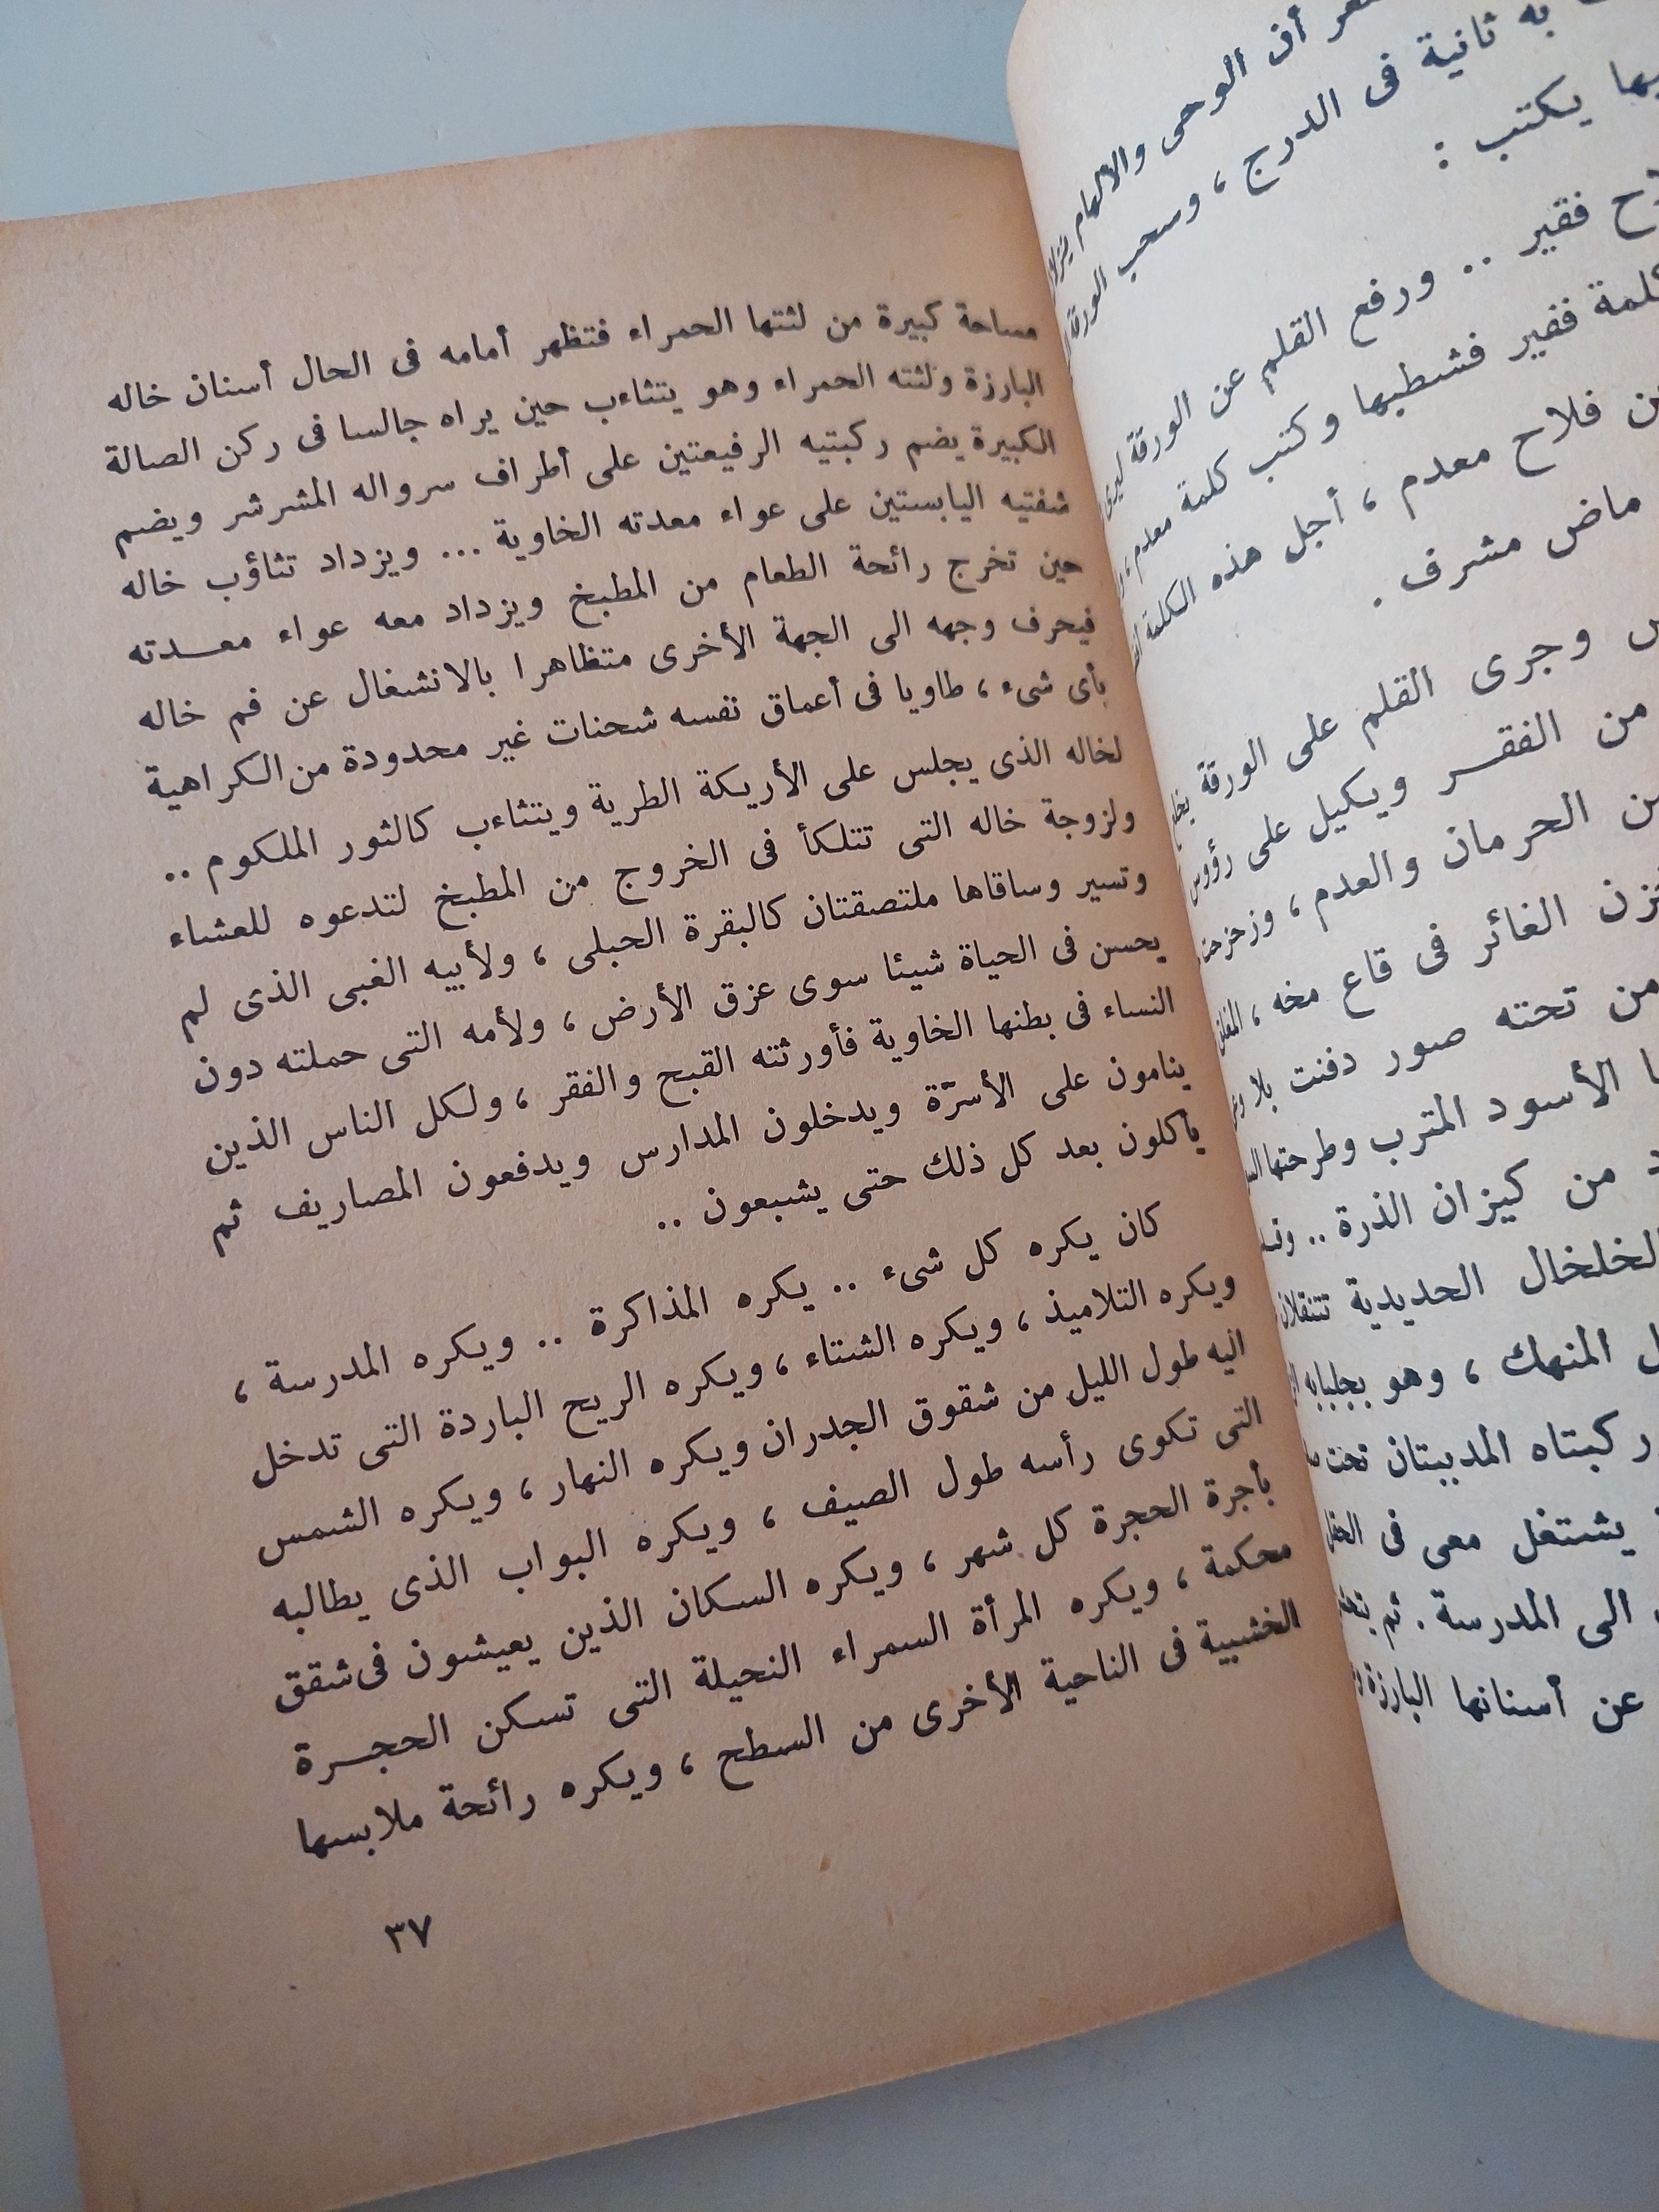 شعر أن الوحى والالهام ينزلان
به ثانية فى الدرج ، وسحب الورقة
يكتب :
فقير .. ورفع القلم عن الورقة ليرى
كلمة فقير فشطبها وكتب كلمة معدم ،
فلاح معدم ، أجل هذه الكلمة
ماض مشرف .
وجرى القلم على الورقة
من الفقـر ويكيل على رؤوس
الحرمان والعدم ، وزحزحت
الغائر فى قاع مخه ،
من تحته صور دفنت بلا
الأسود المترب وطرحتها
من كيزان الذرة ..
الخلخال الحديدية تتنقلان
المنهك ، وهو بجلبابه
ركبتاه المدببتان تحت
يشتغل معى فى الحقل
الى المدرسة . ثم
عن أسنانها البارزة
مساحة كبيرة من لثتها الحمراء فتظهر أمامه فى الحال أسنان خاله
البارزة ولثته الحمراء وهو يتثاءب حين يراه جالسا فى ركن الصالة
الكبيرة يضم ركبتيه الرفيعتين على أطراف سرواله المشرشر ويضم
شفتيه اليابستين على عواء معدته الخاوية ... ويزداد تثاؤب خاله
حين تخرج رائحة الطعام من المطبخ ويزداد معه عواء معـدته
فيحرف وجهه الى الجهة الأخرى متظاهرا بالانشغال عن فم خاله
بأى شىء ، طاويا فى أعماق نفسه شحنات غير محدودة من الكراهية
لخاله الذى يجلس على الأريكة الطرية ويتثاءب كالثور الملكوم ..
ولزوجة خاله التى تتلكأ فى الخروج من المطبخ لتدعوه للعشاء
وتسير وساقاها ملتصقتان كالبقرة الحبلى ، ولأبيه الغبى الذى لم
يحسن فى الحياة شيئا سوى عزق الأرض ، ولأمه التى حملته دون
النساء فى بطنها الخاوية فأورثته القبح والفقر ، ولكل الناس الذين
ينامون على الأسرّة ويدخلون المدارس ويدفعون المصاريف ثم
يأكلون بعد كل ذلك حتى يشبعون ..
كان يكره كل شىء .. يكره المذاكرة .. ويكره المدرسة ،
ويكره التلاميذ ، ويكره الشتاء ، ويكره الريح الباردة التى تدخل
اليه طول الليل من شقوق الجدران ويكره النهار ، ويكره الشمس
التى تكوى رأسه طول الصيف ، ويكره البواب الذى يطالبه
بأجرة الحجرة كل شهر ، ويكره السكان الذين يعيشون فى شقق
محكمة ، ويكره المرأة السمراء النحيلة التى تسكن الحجـرة
الخشبية فى الناحية الأخرى من السطح ، ويكره رائحة ملابسها
٣٧